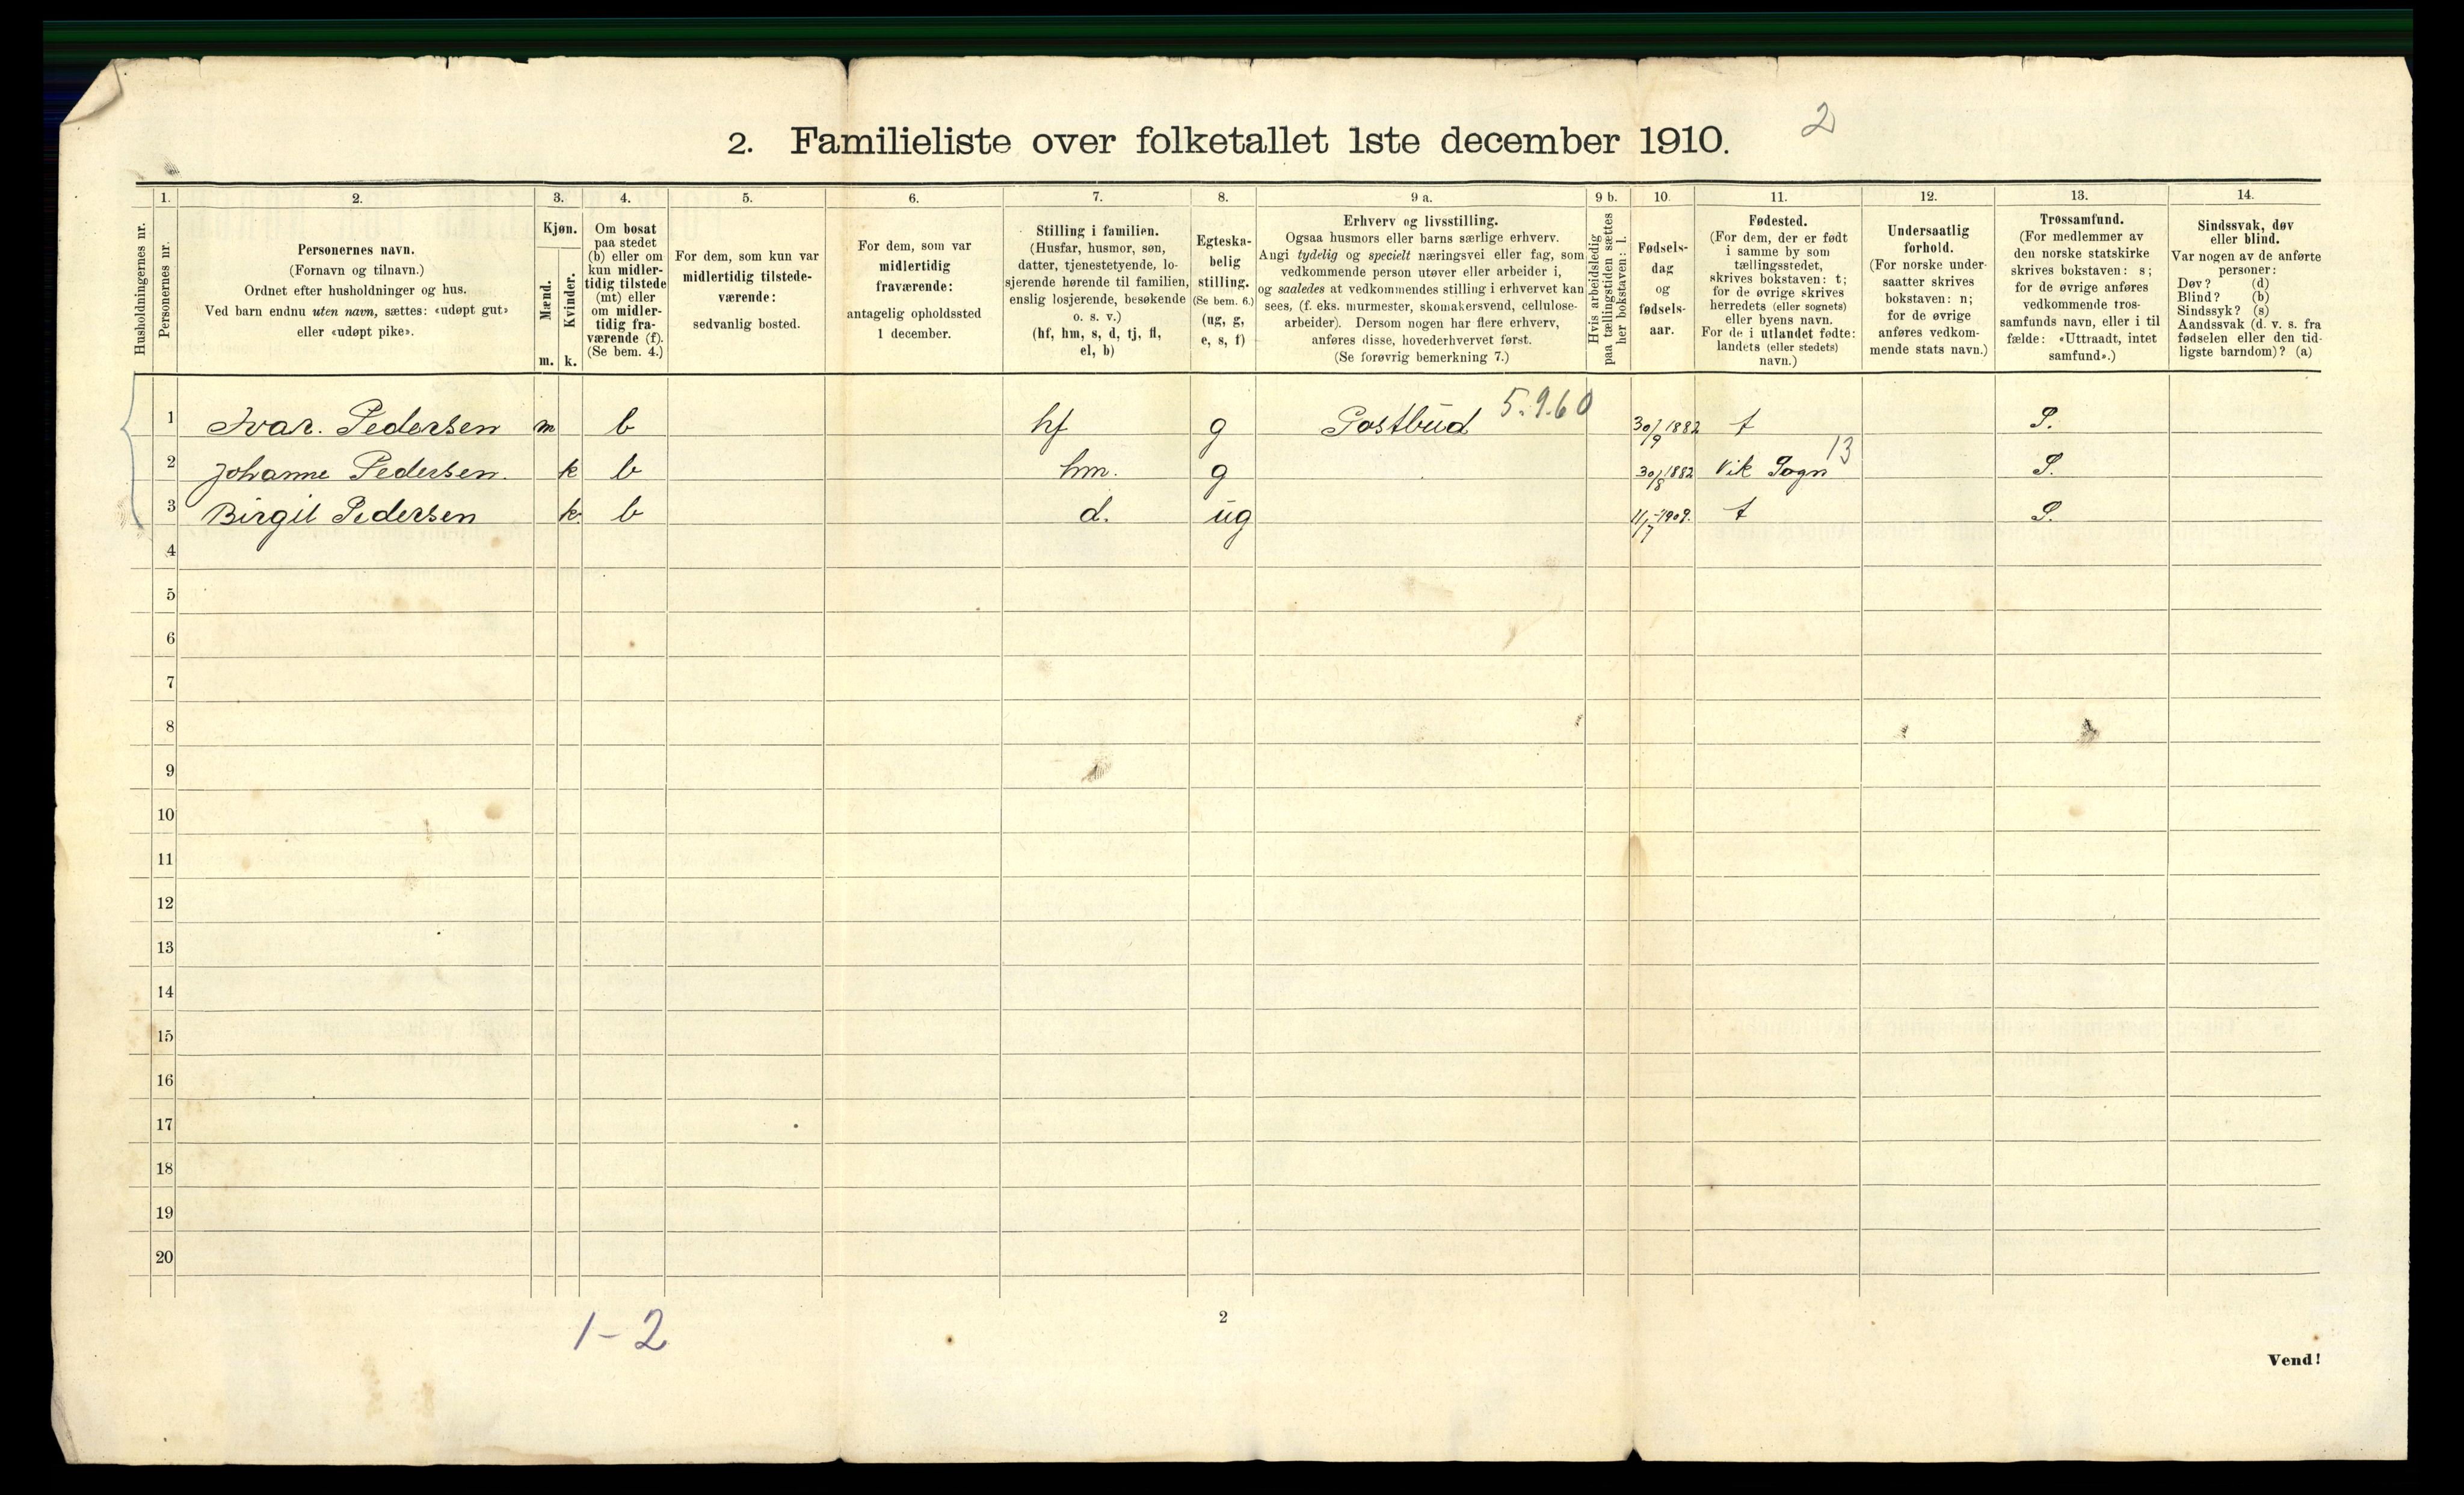 2
2. Familieliste over folketallet 1ste december 1910.
Husholdningernes nr.
1.
Personernes nr.
2.
Personernes navn.
(Fornavn og tilnavn.)
Ordnet efter husholdninger og hus.
Ved barn endnu uten navn, sættes: «udøpt gut»
eller «udøpt pike».
3.
Kjøn.
Mænd.
m.
Kvinder.
k.
4.
Om bosat
paa stedet
(b) eller om
kun midler-
tidig tilstede
(mt) eller
om midler-
tidig fra-
værende (f).
(Se bem. 4.)
5.
For dem, som kun var
midlertidig tilstede-
værende:
sedvanlig bosted.
6.
For dem, som var
midlertidig
fraværende:
antagelig opholdssted
1 december.
7.
Stilling i familien.
(Husfar, husmor, søn,
datter, tjenestetyende, lo-
sjerende hørende til familien,
enslig losjerende, besøkende
o. s. v.)
(hf, hm, s, d, tj, fl,
el, b)
8.
Egteska-
belig
stilling.
(Se bem. 6.)
(ug, g,
e, s, f)
9 a.
Erhverv og livsstilling.
Ogsaa husmors eller barns særlige erhverv.
Angi tydelig og specielt næringsvei eller fag, som
vedkommende person utøver eller arbeider i,
og saaledes at vedkommendes stilling i erhvervet kan
sees, (f. eks. murmester, skomakersvend, cellulose-
arbeider). Dersom nogen har flere erhverv,
anføres disse, hovederhvervet først.
(Se forøvrig bemerkning 7.)
9 b.
Hvis arbeidsledig
paa tællingstiden sættes
her bokstaven: l.
10.
Fødsels-
dag
og
fødsels-
aar.
11.
Fødested.
(For dem, der er født
i samme by som
tællingsstedet,
skrives bokstaven: t;
for de øvrige skrives
herredets (eller sognets)
eller byens navn.
For de i utlandet fødte:
landets (eller stedets)
navn.)
12.
Undersaatlig
forhold.
(For norske under-
saatter skrives
bokstaven: n;
for de øvrige
anføres vedkom-
mende stats navn.)
13.
Trossamfund.
(For medlemmer av
den norske statskirke
skrives bokstaven: s;
for de øvrige anføres
vedkommende tros-
samfunds navn, eller i til
fælde: «Uttraadt, intet
samfund».)
14.
Sindssvak, døv
eller blind.
Var nogen av de anførte
personer:
Døv? (d)
Blind? (b)
Sindssyk? (s)
Aandssvak (d. v. s. fra
fødselen eller den tid-
ligste barndom)? (a)
1 Ivar. Pedersen m b hf g Postbud 5.9.60 30/9 1882 t S.
2 Johanne Pedersen. k b hm. g 30/8 1882 Vik Sogn 13 S.
3 Birgit Pedersen k. b d. ug 11/7-1909. t S.
4
5
6
7
8
9
10
11
12
13
14
15
16
17
18
19
20
1-2
2
Vend!